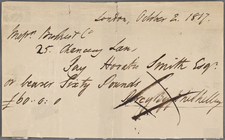 London, October 2. 1817.
Messrs. Brookes & Co
25. Chancery Lane.
Pay Horatio Smith Esqr.
or bearer Sixty Pounds
£60:0:0